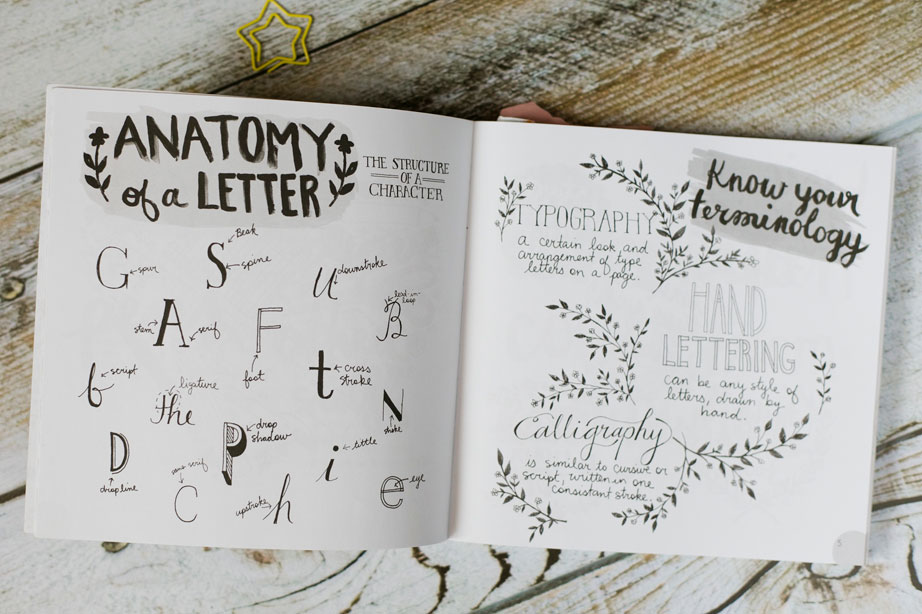 ANATOMY
of a LETTER
THE STRUCTURE
OF A
CHARACTER
G spur
S Beak
spine
u downstroke
stem A serif
F
foot
lead-in-
loop
B
b script
ligature
the
t cross
stroke
N
D
dropline
P drop
shadow
i tittle
sans serif
C
upstroke h
e eye
Know your
terminology
TYPOGRAPHY
a certain look and
arrangement of type
letters on a page.
HAND
LETTERING
can be any style of
letters, drawn by
hand.
Calligraphy
is similar to cursive or
script, written in one
consistant stroke.